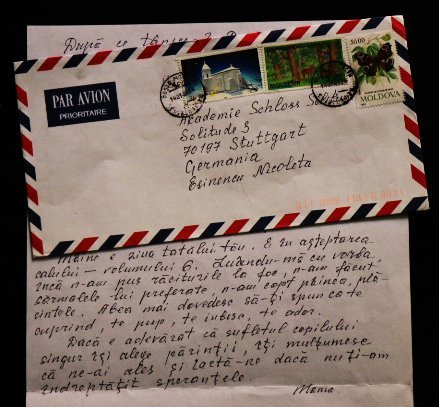 După ce
PAR AVION
PRIORITAIRE
MOLDOVA
Academie Schloss
Solitude 3
70197 Stuttgart
Germania
Esinencu Nicoleta
Mâine e ziua tatălui tău. E în așteptarea
calului – volumului 6. Luându-mă cu vorba,
încă n-am pus răciturile la foc, n-am făcut
sarmalele lui preferate, n-am copt pâinea, plă-
cintele. Abea mai dovedesc să-ți spun că te
cuprind, te pup, te iubesc, te ador.
Dacă e adevărat că sufletul copilului
singur își alege părinții, îți mulțumesc
că ne-ai ales și iartă-ne dacă nu ți-am
îndreptățit speranțele.
Mama.